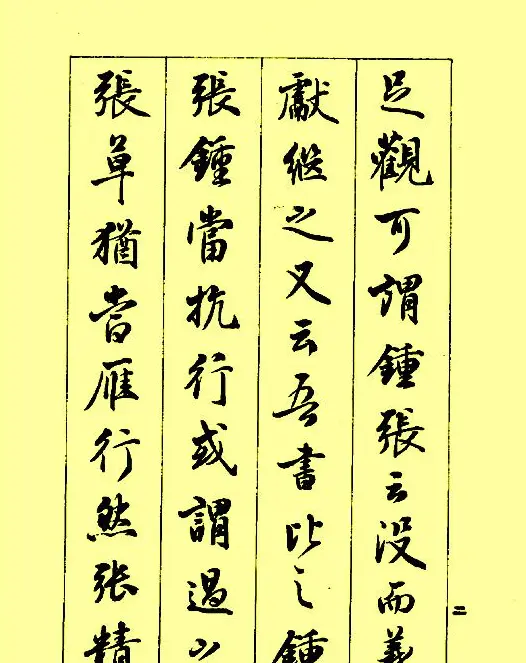 足觀可謂鍾張云没而羲
獻継之又云吾書比之鍾
張鍾當抗行或謂過之
張草猶當雁行然張精
二